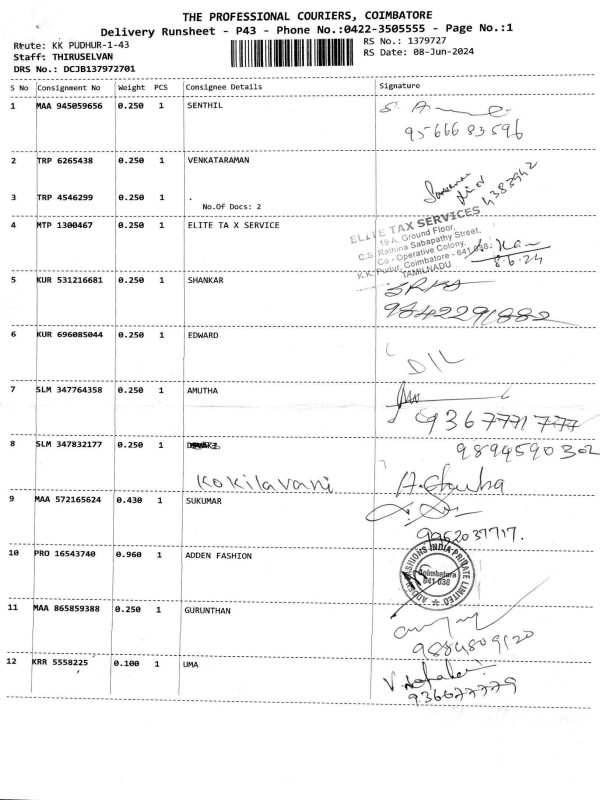 THE PROFESSIONAL COURIERS, COIMBATORE
Delivery Runsheet - P43 - Phone No.:0422-3505555 - Page No.:1
Route: KK PUDHUR-1-43
RS No.: 1379727
Staff: THIRUSELVAN
RS Date: 08-Jun-2024
DRS No.: DCJB137972701
S No Consignment No Weight PCS Consignee Details Signature
1 MAA 945059656 0.250 1 SENTHIL
9566683596
2 TRP 6265438 0.250 1 VENKATARAMAN
4383942
3 TRP 4546299 0.250 1 .
No.Of Docs: 2
4 MTP 1300467 0.250 1 ELITE TA X SERVICE
ELITE TAX SERVICES
19 A, Ground Floor,
C.S. Rathina Sabapathy Street,
Co - Operative Colony,
K.K. Pudur, Coimbatore - 641 038.
TAMILNADU
8.6.24
5 KUR 531216681 0.250 1 SHANKAR
9842291882
6 KUR 696085044 0.250 1 EDWARD
D/L
7 SLM 347764358 0.250 1 AMUTHA
9367771777
8 SLM 347832177 0.250 1
9894590302
Kokilavani
9 MAA 572165624 0.430 1 SUKUMAR
9962037717.
10 PRO 16543740 0.960 1 ADDEN FASHION
ADDEN FASHIONS INDIA PRIVATE LIMITED
Coimbatore
641 038
11 MAA 865859388 0.250 1 GURUNTHAN
9884809120
12 KRR 5558225 0.100 1 UMA
936677779